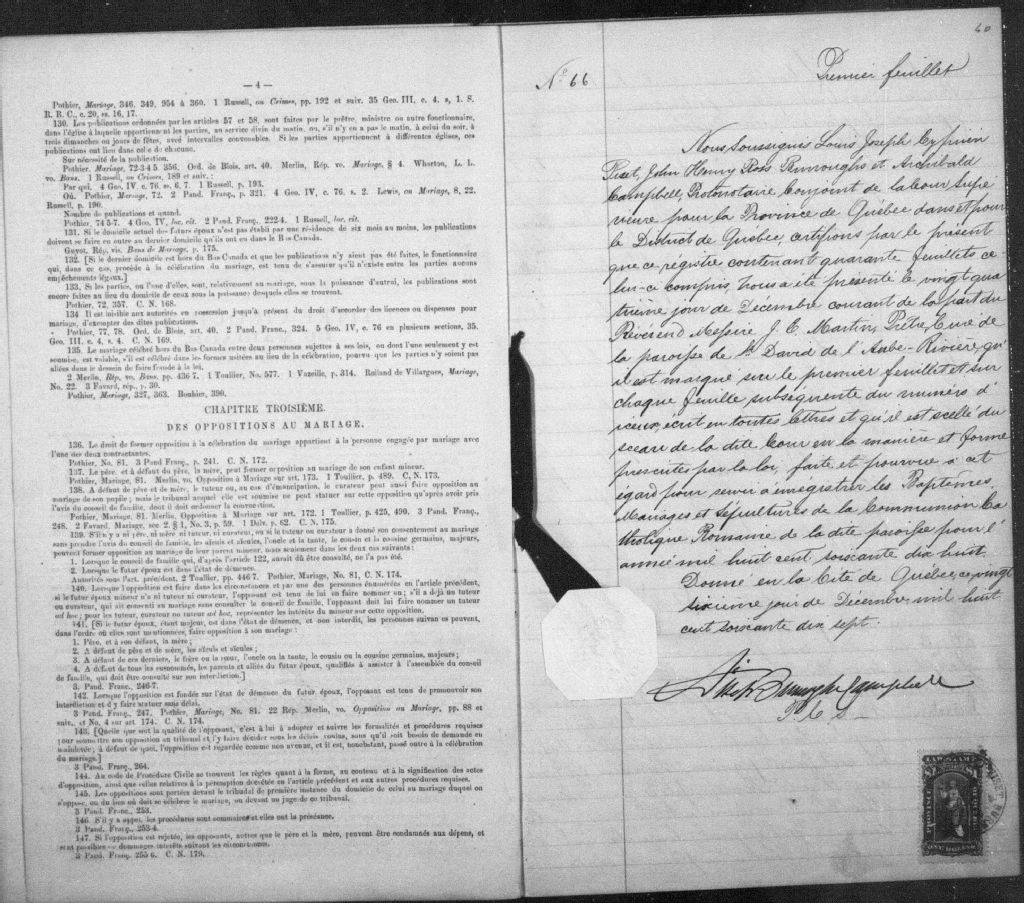 — 4 —
Pothier, Mariage, 346, 349, 954 à 360. 1 Russell, on Crimes, pp. 192 et suiv. 35 Geo. III, c. 4. s, 1. S.
R. B. C., c. 20, ss. 16, 17.
130. Les publications ordonnées par les articles 57 et 58, sont faites par le prêtre, ministre ou autre fonctionnaire,
dans l'église à laquelle appartiennent les parties, au service divin du matin, ou, s'il n'y en a pas le matin, à celui du soir, à
trois dimanches ou jours de fêtes, avec intervalles convenables. Si les parties appartiennent à différentes églises, ces
publications ont lieu dans celle de chacune.
Sur nécessité de la publication.
Pothier, Mariage, 72-3 4 5. 356, Ord. de Blois, art. 40. Merlin, Rép. vo. Mariage, § 4. Wharton, L. L.
vo. Bans. 1 Russell, on Crimes, 189 et suiv. :
Par qui. 4 Geo. IV, c. 76, ss. 6, 7. 1 Russell, p. 193.
Où. Pothier, Mariage, 72. 2 Pand. Franç., p. 321. 4 Geo. IV, c. 76, s. 2. Lewis, on Mariage, 8, 22.
Russell, p. 190.
Nombre de publications et quand.
Pothier, 74 5-7. 4 Geo. IV, loc. cit. 2 Pand. Franç. 222 4. 1 Russell, loc. cit.
131. Si le domicile actuel des futurs époux n'est pas établi par une résidence de six mois au moins, les publications
doivent se faire en outre au dernier domicile qu'ils ont eu dans le Bas-Canada.
Guyot, Rép. vis. Bans de Mariage, p. 175.
132. [Si le dernier domicile est hors du Bas-Canada et que les publications n'y aient pas été faites, le fonctionnaire
qui, dans ce cas, procède à la célébration du mariage, est tenu de s'assurer qu'il n'existe entre les parties aucuns
empêchements légaux.]
133. Si les parties, ou l'une d'elles, sont, relativement au mariage, sous la puissance d'autrui, les publications sont
encore faites au lieu du domicile de ceux sous la puissance desquels elles se trouvent.
Pothier, 72, 357. C. N. 168.
134 Il est loisible aux autorités en possession jusqu'à présent du droit d'accorder des licences ou dispenses pour
mariage, d'exempter des dites publications.
Pothier, 77, 78. Ord. de Blois, art. 40. 2 Pand. Franç., 324. 5 Geo IV, c. 76 en plusieurs sections, 35.
Geo. III, c. 4, s. 4. C. N. 169.
135. Le mariage célébré hors du Bas-Canada entre deux personnes sujettes à ses lois, ou dont l'une seulement y est
soumise, est valable, s'il est célébré dans les formes usitées au lieu de la célébration, pourvu que les parties n'y soient pas
allées dans le dessein de faire fraude à la loi.
2 Merlin, Rép. vo. Bans, pp. 436 7. 1 Toullier, No. 577. 1 Vazeille, p. 314. Rolland de Villargues, Mariage,
No. 22. 3 Favard, rép., p. 30.
Pothier, Mariage, 327, 363. Bouhier, 390.
CHAPITRE TROISIÈME.
DES OPPOSITIONS AU MARIAGE.
136. Le droit de former opposition à la célébration du mariage appartient à la personne engagée par mariage avec
l'une des deux contractantes.
Pothier, No. 81. 3 Pand Franç., p. 241. C. N. 172.
137. Le père, et à défaut du père, la mère, peut former opposition au mariage de son enfant mineur.
Pothier, Mariage, 81. Merlin, vo. Opposition à Mariage sur art. 173. 1 Toullier, p. 489. C. N. 173.
138. A défaut de père et de mère, le tuteur ou, au cas d'émancipation, le curateur peut aussi faire opposition au
mariage de son pupille ; mais le tribunal auquel elle est soumise ne peut statuer sur cette opposition qu'après avoir pris
l'avis du conseil de famille, dont il doit ordonner la convocation.
Pothier, Mariage, 81. Merlin, Opposition à Mariage sur art. 172. 1 Toullier, p. 425, 490. 3 Pand. Franç.,
248. 2 Favard, Mariage, sec. 2, § 1, No. 3, p. 59. 1 Delv. p. 62. C. N. 175.
139. S'il n'y a ni père, ni mère ni tuteur, ni curateur, ou si le tuteur ou curateur a donné son consentement au mariage
sans prendre l'avis du conseil de famille, les aïeuls et aïeules, l'oncle et la tante, le cousin et la cousine germains, majeurs,
peuvent former opposition au mariage de leur parent mineur, mais seulement dans les deux cas suivants :
1. Lorsque le conseil de famille qui, d'après l'article 122, aurait dû être consulté, ne l'a pas été.
2. Lorsque le futur époux est dans l'état de démence.
Autorités sous l'art. précédent. 2 Toullier, pp. 446 7. Pothier, Mariage, No. 81, C. N. 174.
140. Lorsque l'opposition est faite dans les circonstances et par une des personnes énumérées en l'article précédent,
si le futur époux mineur n'a ni tuteur ni curateur, l'opposant est tenu de lui en faire nommer un ; s'il a déjà un tuteur
ou curateur, qui ait consenti au mariage sans consulter le conseil de famille, l'opposant doit lui faire nommer un tuteur
ad hoc ; pour les tuteur, curateur ou tuteur ad hoc, représenter les intérêts du mineur sur cette opposition.
141. [Si le futur époux, étant majeur, est dans l'état de démence, et non interdit, les personnes suivantes peuvent,
dans l'ordre où elles sont mentionnées, faire opposition à son mariage :
1. Père, et à son défaut, la mère ;
2. A défaut de père et de mère, les aïeuls et aïeules ;
3. A défaut de ces derniers, le frère ou la sœur, l'oncle ou la tante, le cousin ou la cousine germains, majeurs ;
4. A défaut de tous les susnommés, les parents et alliés du futur époux, qualifiés à assister à l'assemblée du conseil
de famille, qui doit être consulté sur son interdiction.]
3. Pand. Franç. 246-7.
142. Lorsque l'opposition est fondée sur l'état de démence du futur époux, l'opposant est tenu de promouvoir son
interdiction et d'y faire statuer sans délai.
3 Pand. Franç., 247. Pothier, Mariage, No. 81. 22 Rép. Merlin, vo. Opposition au Mariage, pp. 88 et
suiv., et No. 4 sur art. 174. C. N. 174.
143. [Quelle que soit la qualité de l'opposant, c'est à lui à adopter et suivre les formalités et procédures requises
pour soumettre son opposition au tribunal et l'y faire décider sous les délais voulus, sans qu'il soit besoin de demande en
mainlevée ; à défaut de quoi, l'opposition est regardée comme non avenue, et il est, nonobstant, passé outre à la célébration
du mariage.]
3 Pand. Franç., 264.
144. Au code de Procédure Civile se trouvent les règles quant à la forme, au contenu et à la signification des actes
d'opposition, ainsi que celles relatives à la péremption décrétée en l'article précédent et aux autres procédures requises.
145. Les oppositions sont portées devant le tribunal de première instance du domicile de celui au mariage duquel on
s'oppose, ou du lieu où doit se célébrer le mariage, ou devant un juge de ce tribunal.
3 Pand. Franc., 253.
146. S'il y a appel, les procédures sont sommaires et elles ont la préséance.
3 Pand. Franç., 253-4.
147. Si l'opposition est rejetée, les opposants, autres que le père et la mère, peuvent être condamnés aux dépens, et
sont passibles de dommages-intérêts suivant les circonstances.
3 Pand. Franç. 255 6. C. N. 179.
60
No 66
Premier feuillet
Nous Soussignés Louis Joseph Cyprien
Fiset, John Henry Ross Burroughs et Archibald
Campbell, Protonotaire Conjoint de la Cour Supé
rieure pour la Province de Québec dans et pour
le District de Québec, certifions par le présent
que ce régistre contenant quarante feuillets ce
lui-ci compris, nous a été présenté le vingt qua
trième jour de Décembre courant de la part du
Révérend Messire J. E. Martin, Prêtre Curé de
la paroisse de St David de l'Aube-Rivière, qu'
il est marqué sur le premier feuillet et sur
chaque feuille subséquente du numéro d'
iceux, écrit en toutes lettres et qu'il est scellé du
sceau de la dite Cour en la manière et forme
prescrites par la loi, faite et pourvue à cet
égard pour servir a enregistrer les Baptêmes
Mariages et Sépultures de la Communion Ca
tholique Romaine de la dite paroisse pour l'
année mil huit cent soixante dix huit.
Donné en la Cité de Québec, ce vingt
sixième jour de Décembre mil huit
cent soixante dix sept.
Fiset Burroughs Campbell
P. C. S.
LAW STAMP
PROVINCE
OF QUEBEC
ONE DOLLAR